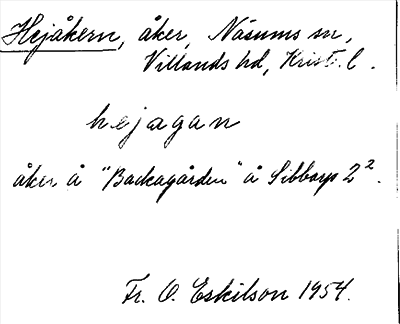 Hejåkern, åker, Näsums sn,
Villands hd, Krist. l.
hejagan
åker å "Backagården" å Sibbarp 2².
Fr. O. Eskilson 1954.